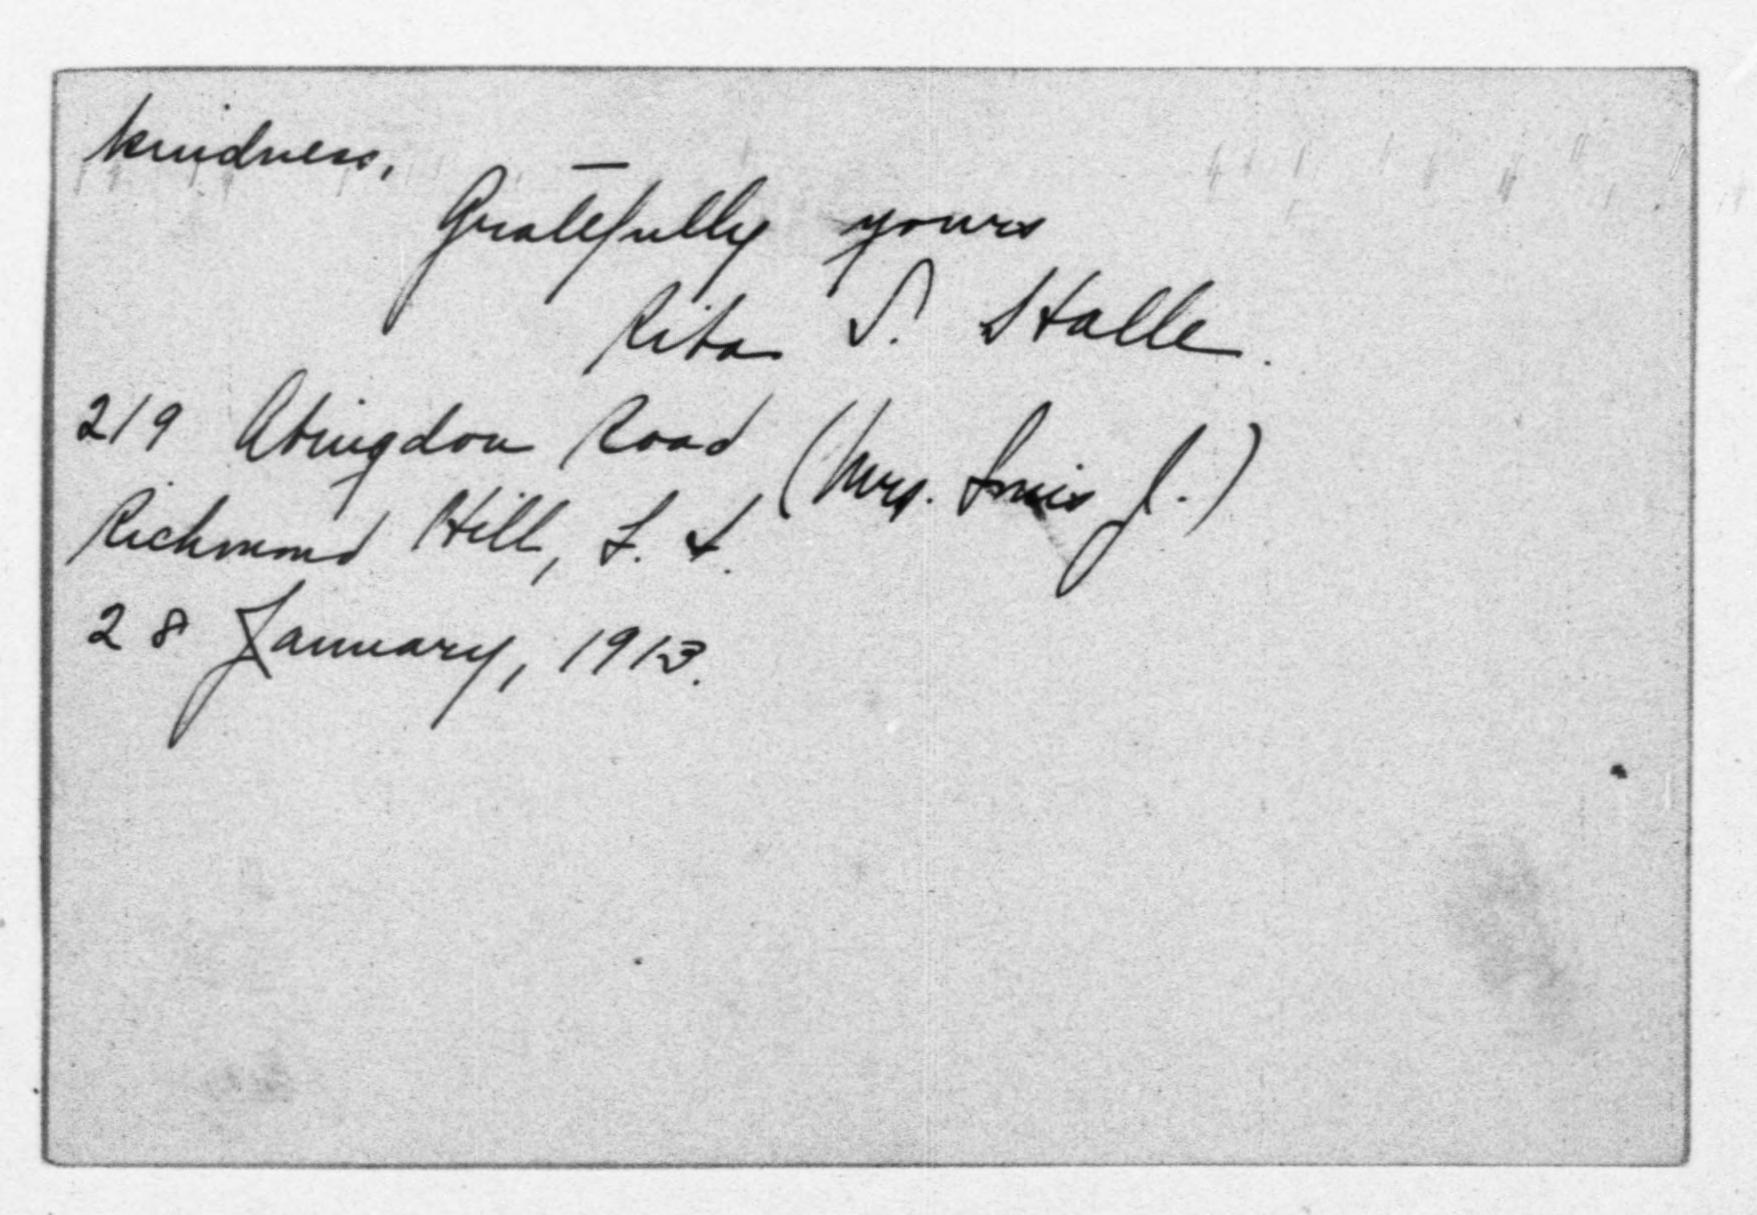 kindness,
Gratefully yours
Rita S. Halle.
(Mrs. Louis J.)
219 Abingdon Road
Richmond Hill, L. I.
28 January, 1913.